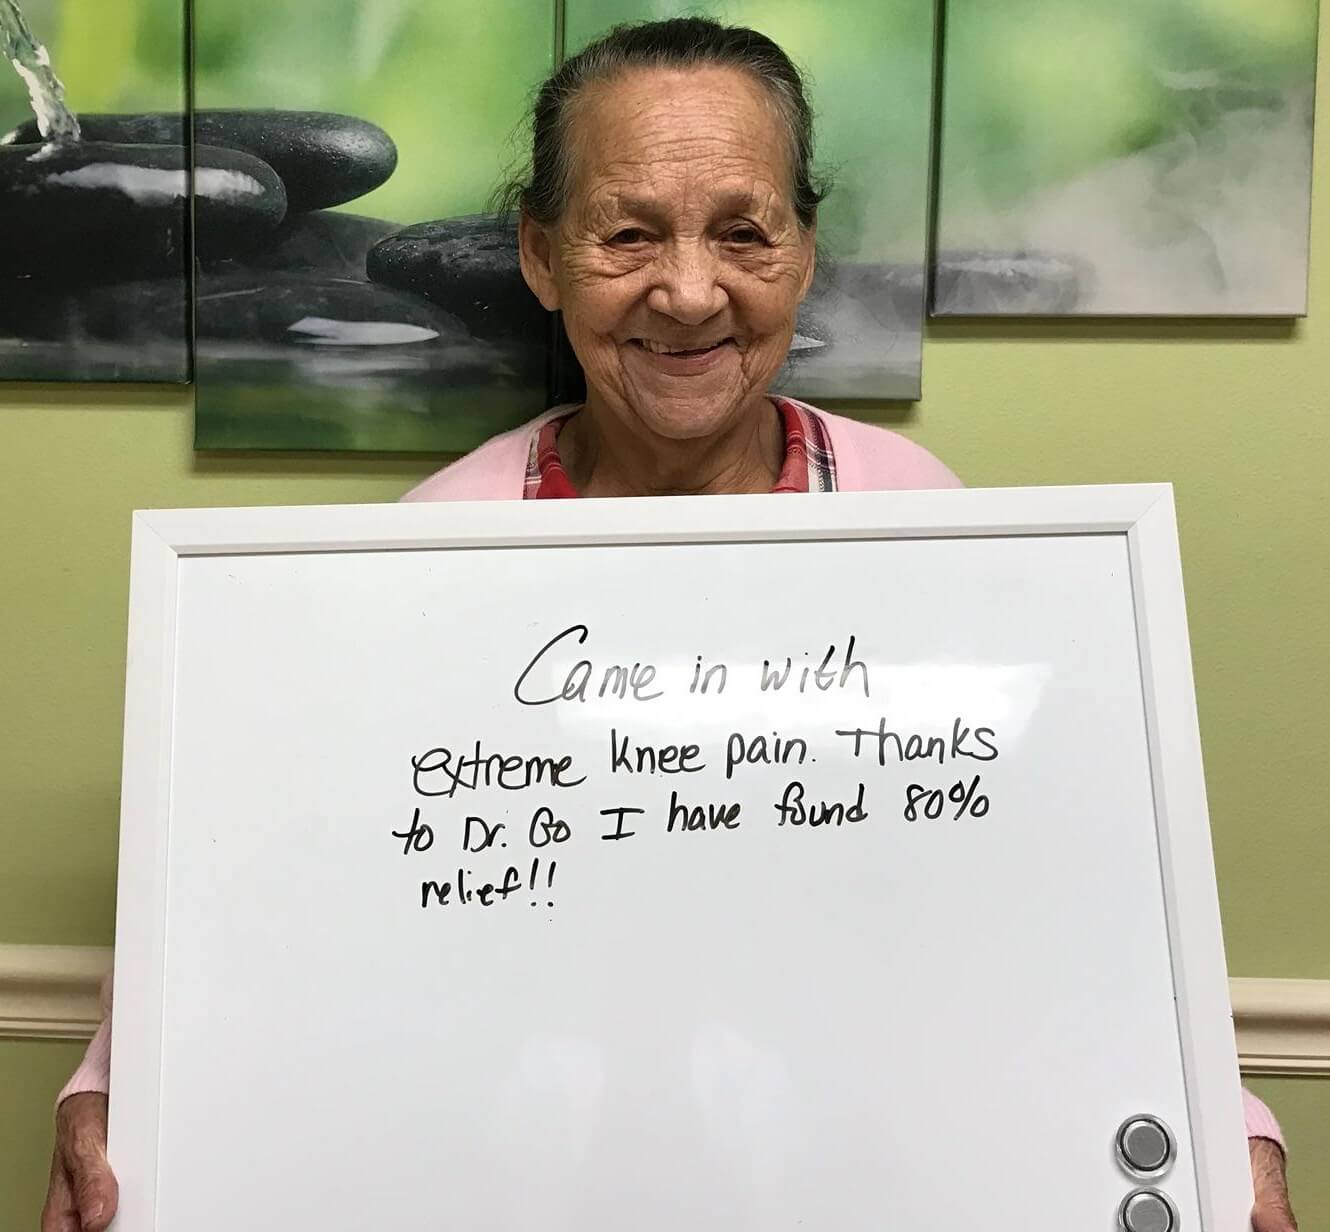 Came in with
extreme knee pain. Thanks
to Dr. Go I have found 80%
relief!!